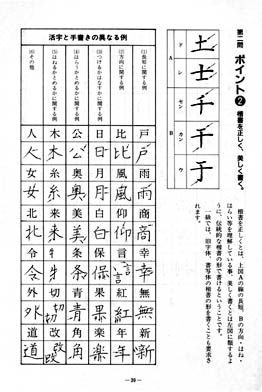 第二問
ポイント❷ 楷書を正しく、美しく書く。
A
ド 土
シ 士
B
セン 千
カン 干
ウ 于
楷書を正しくとは、上図Aの線の長短、Bの方向・はね・
はらい等を理解している事、美しく書くとは左図に関するよ
うに、伝統的な楷書の形で書けるということです。
一級では、旧字体、書写体の楷書の形を書くことも要求さ
れます。
活字と手書きの異なる例
(1)長短に関する例
戸 雨 商 幸 無 新
戸 雨 商 幸 無 新
(2)方向に関する例
比 風 仰 言 年
比 風 仰 言 年
(3)つけるかはなすかに関する例
日 月 白 保 果 楽
日 月 白 保 果 楽
公 奥 美 条 青 角
公 奥 美 条 青 角
木 糸 来 切 改
木 糸 来 切 改
(6)その他
人 女 北 令 外 道
人 女 北 令 外 道
— 39 —